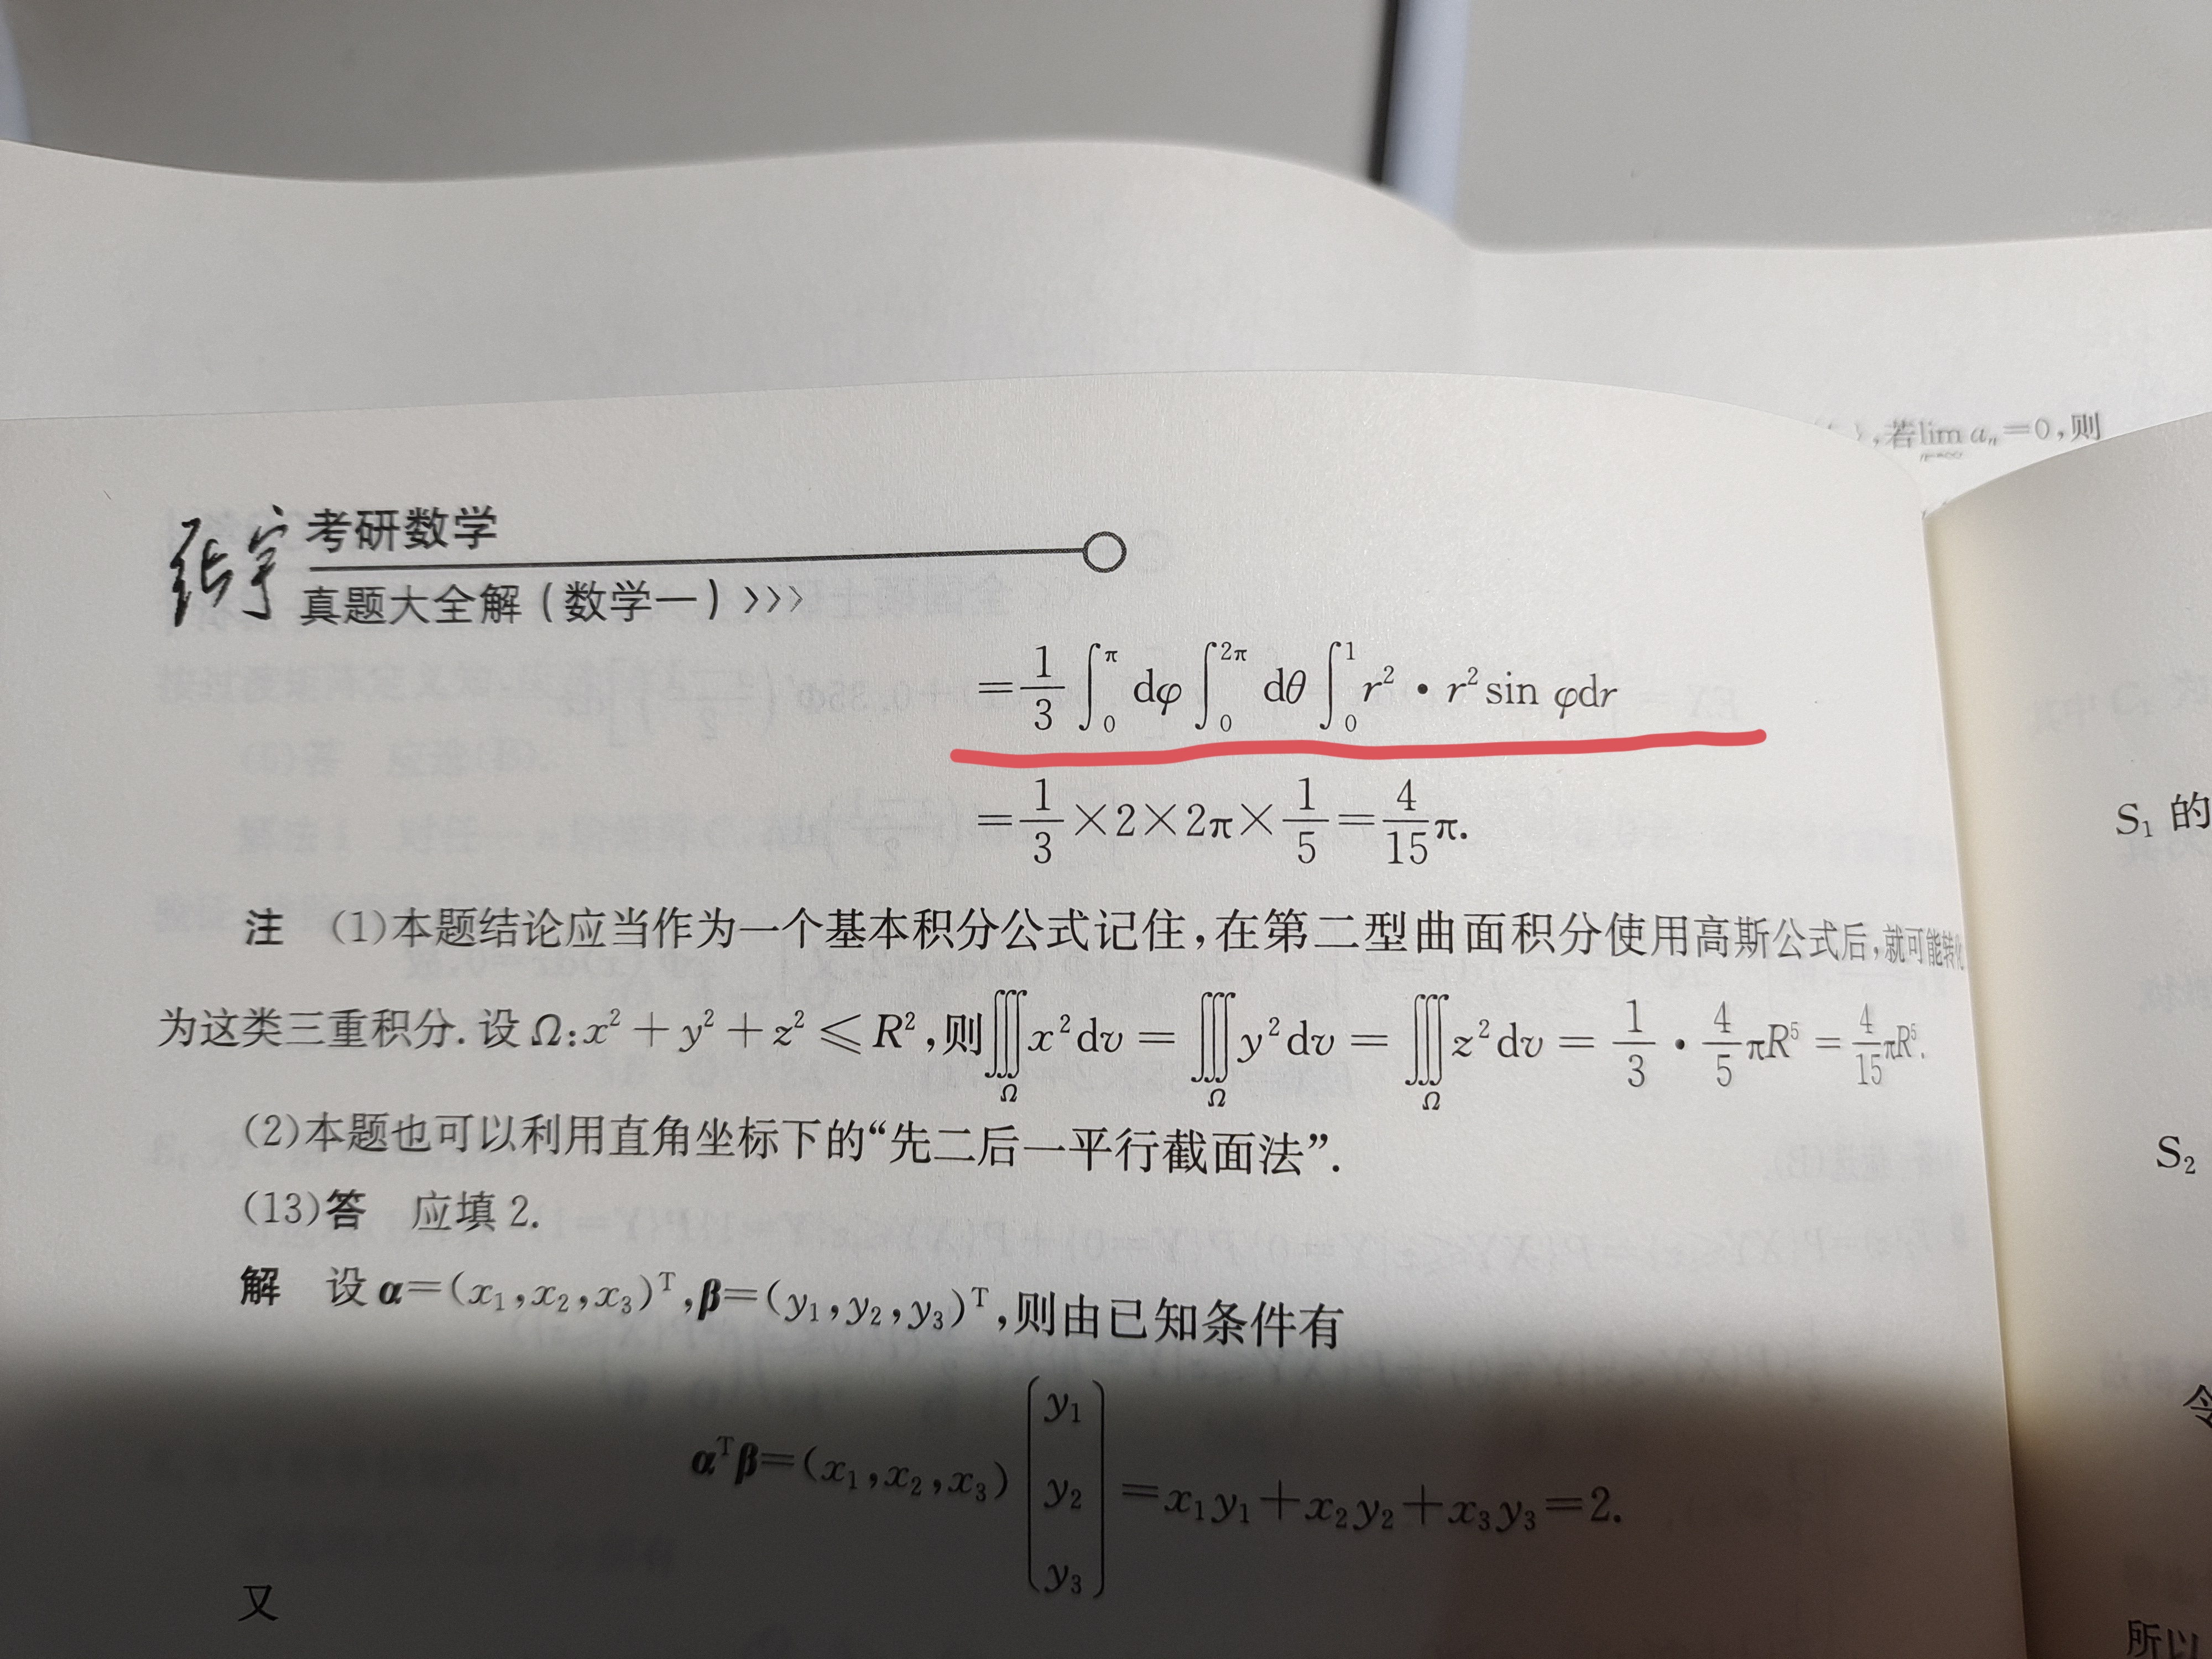 ,若lim aₙ=0,则
n→∞
张宇 考研数学
真题大全解(数学一)>>>
=1/3 ∫₀^π dφ ∫₀^{2π} dθ ∫₀^1 r²·r² sin φdr
=1/3×2×2π×1/5=4/15π.
注 (1)本题结论应当作为一个基本积分公式记住,在第二型曲面积分使用高斯公式后,就可能转化
为这类三重积分.设Ω:x²+y²+z²≤R²,则∭_Ω x²dv=∭_Ω y²dv=∭_Ω z²dv=1/3·4/5πR⁵=4/15πR⁵.
(2)本题也可以利用直角坐标下的“先二后一平行截面法”.
(13)答 应填2.
解 设α=(x₁,x₂,x₃)ᵀ,β=(y₁,y₂,y₃)ᵀ,则由已知条件有
αᵀβ=(x₁,x₂,x₃)(y₁ y₂ y₃)=x₁y₁+x₂y₂+x₃y₃=2.
又
S₁的
S₂
令
所以